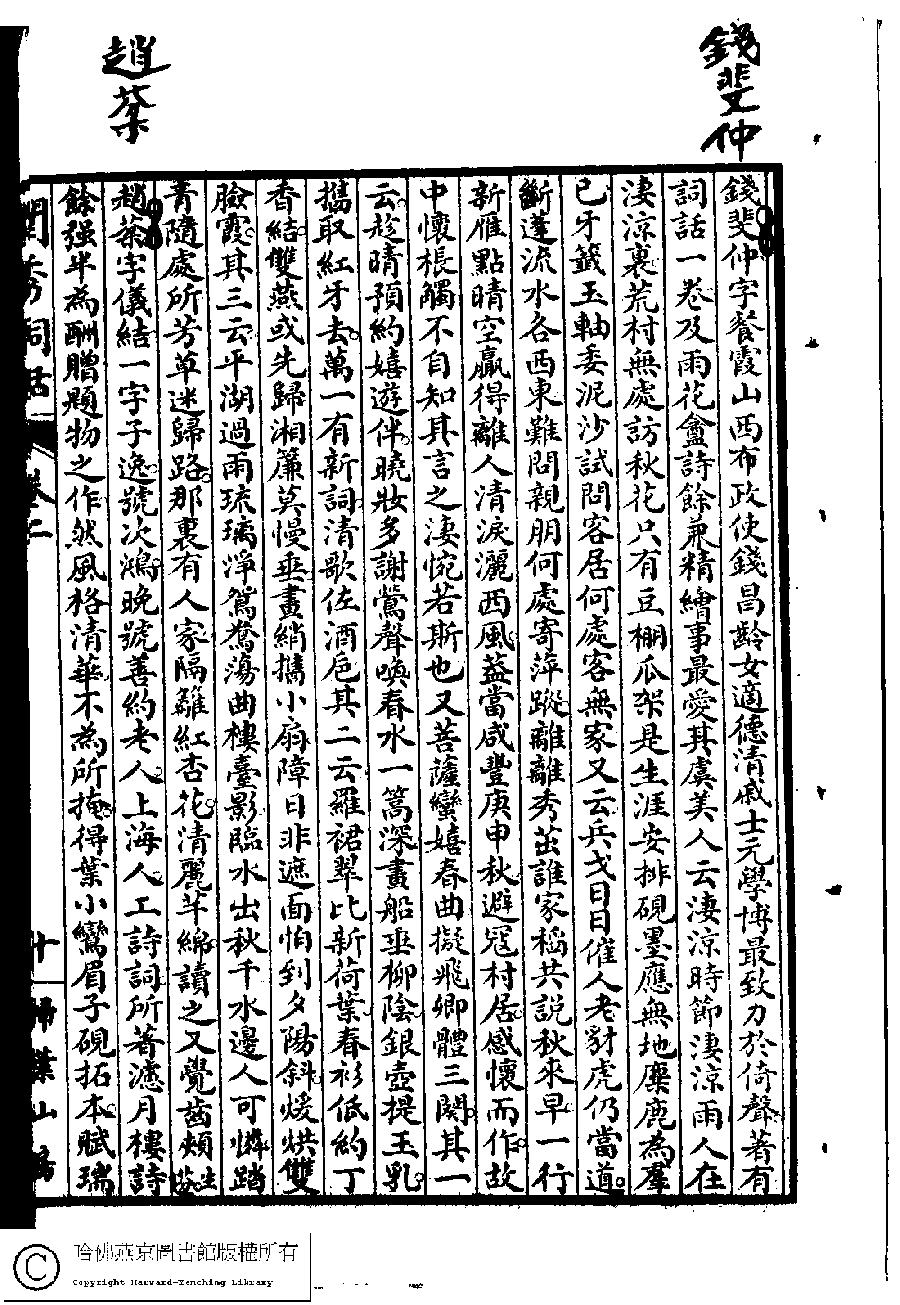 錢斐仲
趙棻
錢斐仲字餐霞山西布政使錢昌齡女適德清戚士元學博最致力於倚聲著有
詞話一卷及雨花盦詩餘兼精繪事最愛其虞美人云淒涼時節淒涼雨人在
淒涼裏荒村無處訪秋花只有豆棚瓜架是生涯安排硯墨應無地麋鹿為羣
已牙籤玉軸委泥沙試問客居何處客無家又云兵戈日日催人老豺虎仍當道
斷蓬流水各西東難問親朋何處寄萍蹤離離秀茁誰家稻共說秋來早一行
新雁點晴空贏得離人清淚灑西風葢當咸豐庚申秋避寇村居感懷而作故
中懷棖觸不自知其言之淒惋若斯也又菩薩蠻嬉春曲擬飛卿體三闋其一
云趁晴預約嬉遊伴曉妝多謝鶯聲喚春水一篙深畫船垂柳陰銀壺提玉乳
攜取紅牙去萬一有新詞清歌佐酒卮其二云羅裙翠比新荷葉春衫低約丁
香結雙燕或先歸湘簾莫慢垂畫綃攜小扇障日非遮面怕到夕陽斜煖烘雙
臉霞其三云平湖過雨琉璃淨鴛鴦蕩曲樓臺影臨水出秋千水邊人可憐踏
青隨處所芳草迷歸路那裏有人家隔籬紅杏花清麗芊綿讀之又覺齒頰生芬
趙棻字儀結一字子逸號次鴻晚號善約老人上海人工詩詞所著濾月樓詩
餘强半為酬贈題物之作然風格清華不為所掩得葉小鸞眉子硯拓本賦瑞
閨秀詞話 卷二 十 掃葉山房
哈佛燕京圖書館版權所有
Copyright Harvard-Yenching Library